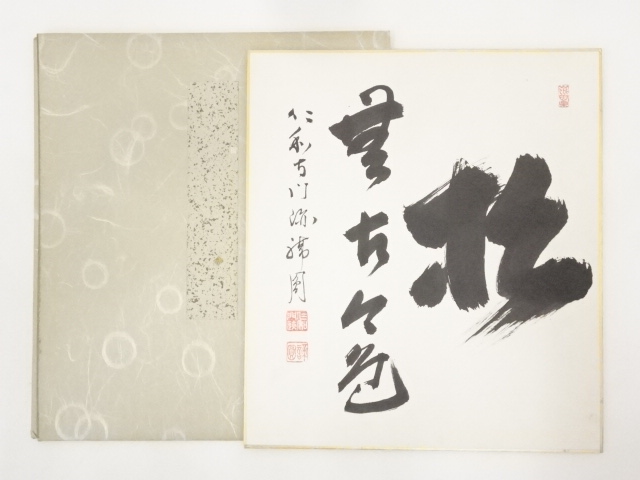 松
無古今色
仁和寺門跡